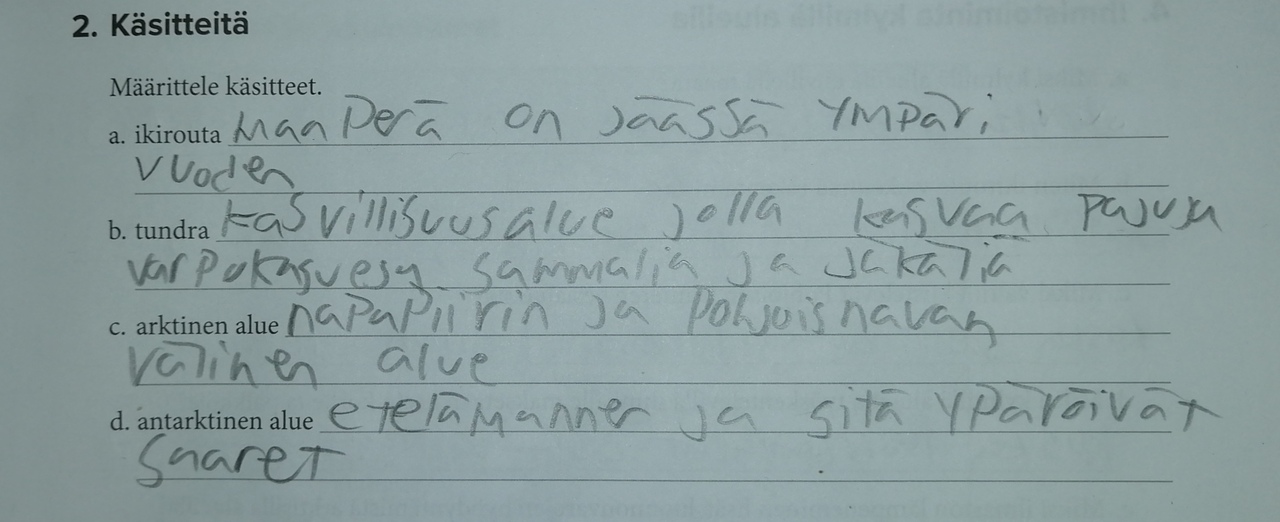 2. Käsitteitä
Määrittele käsitteet.
a. ikirouta maaperä on jäässä ympäri
vuoden
b. tundra kasvillisuusalue jolla kasvaa pajuja
varpukasveja sammalia ja jäkäliä
c. arktinen alue napapiirin ja pohjoisnavan
välinen alue
d. antarktinen alue etelämanner ja sitä ypäröivät
saaret